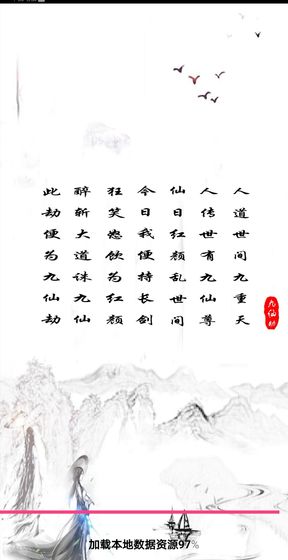 人道世间九重天
人传世有九仙尊
仙曰红颜乱世间
今日我便持长剑
狂笑怒饮为红颜
醉斩大道诛九仙
此劫便为九仙劫
九仙劫
加载本地数据资源97%